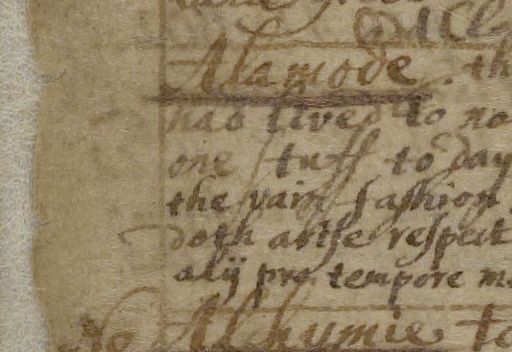 Alamode. th
has lived to no
one stuff to day
the vain fashion
doth arise respect
alij pro tempore
No Alchymie to